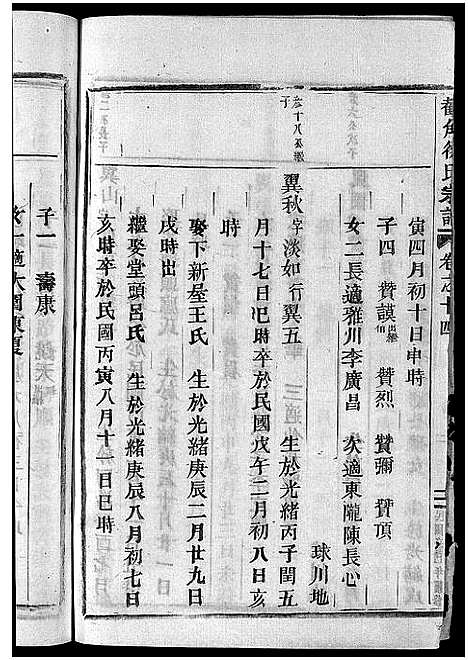 徐氏宗譜 卷之十四
寅四月初十日申時
子四 贊謨出繼 贊烈 贊彌 贊頂
女二長適雅川李廣昌 次適東隴陳長心
球川地
翼秋字淡如行翼五 生於光緒丙子閏五
月十七日巳時卒於民國戊午二月初八日亥
時
娶下新屋王氏 生於光緒庚辰二月廿九日
戌時出
繼娶堂頭呂氏 生於光緒庚辰八月初七日
亥時卒於民國丙寅八月十一日巳時
子一 壽康
女一適大園東夏